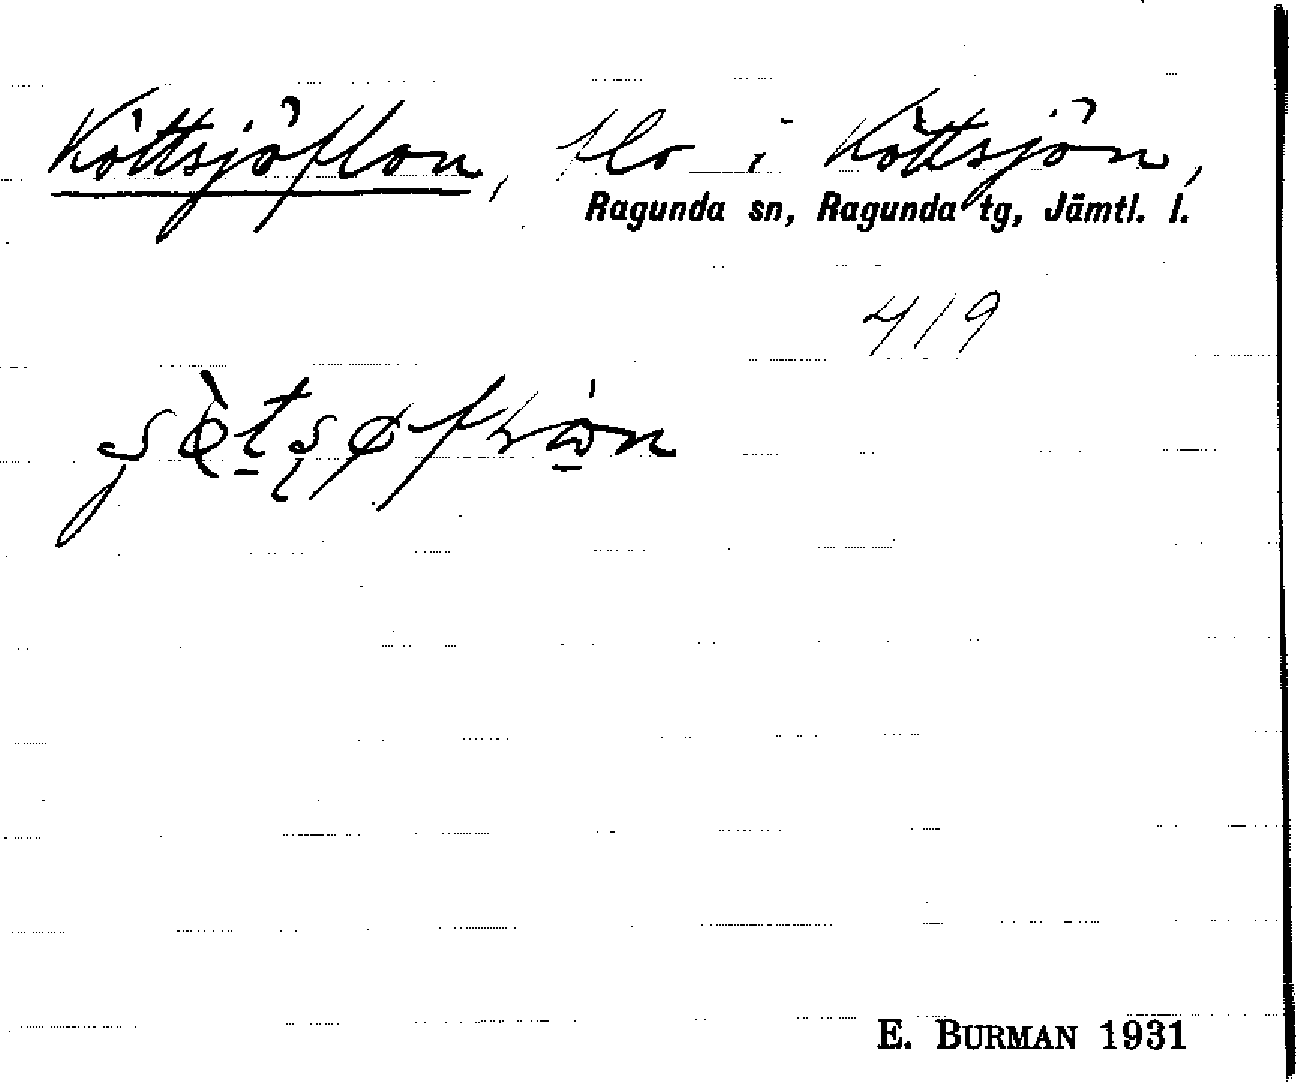 Köttsjöflon, flo i Köttsjön,
Ragunda sn, Ragunda tg, Jämtl. l.
419
E. BURMAN 1931